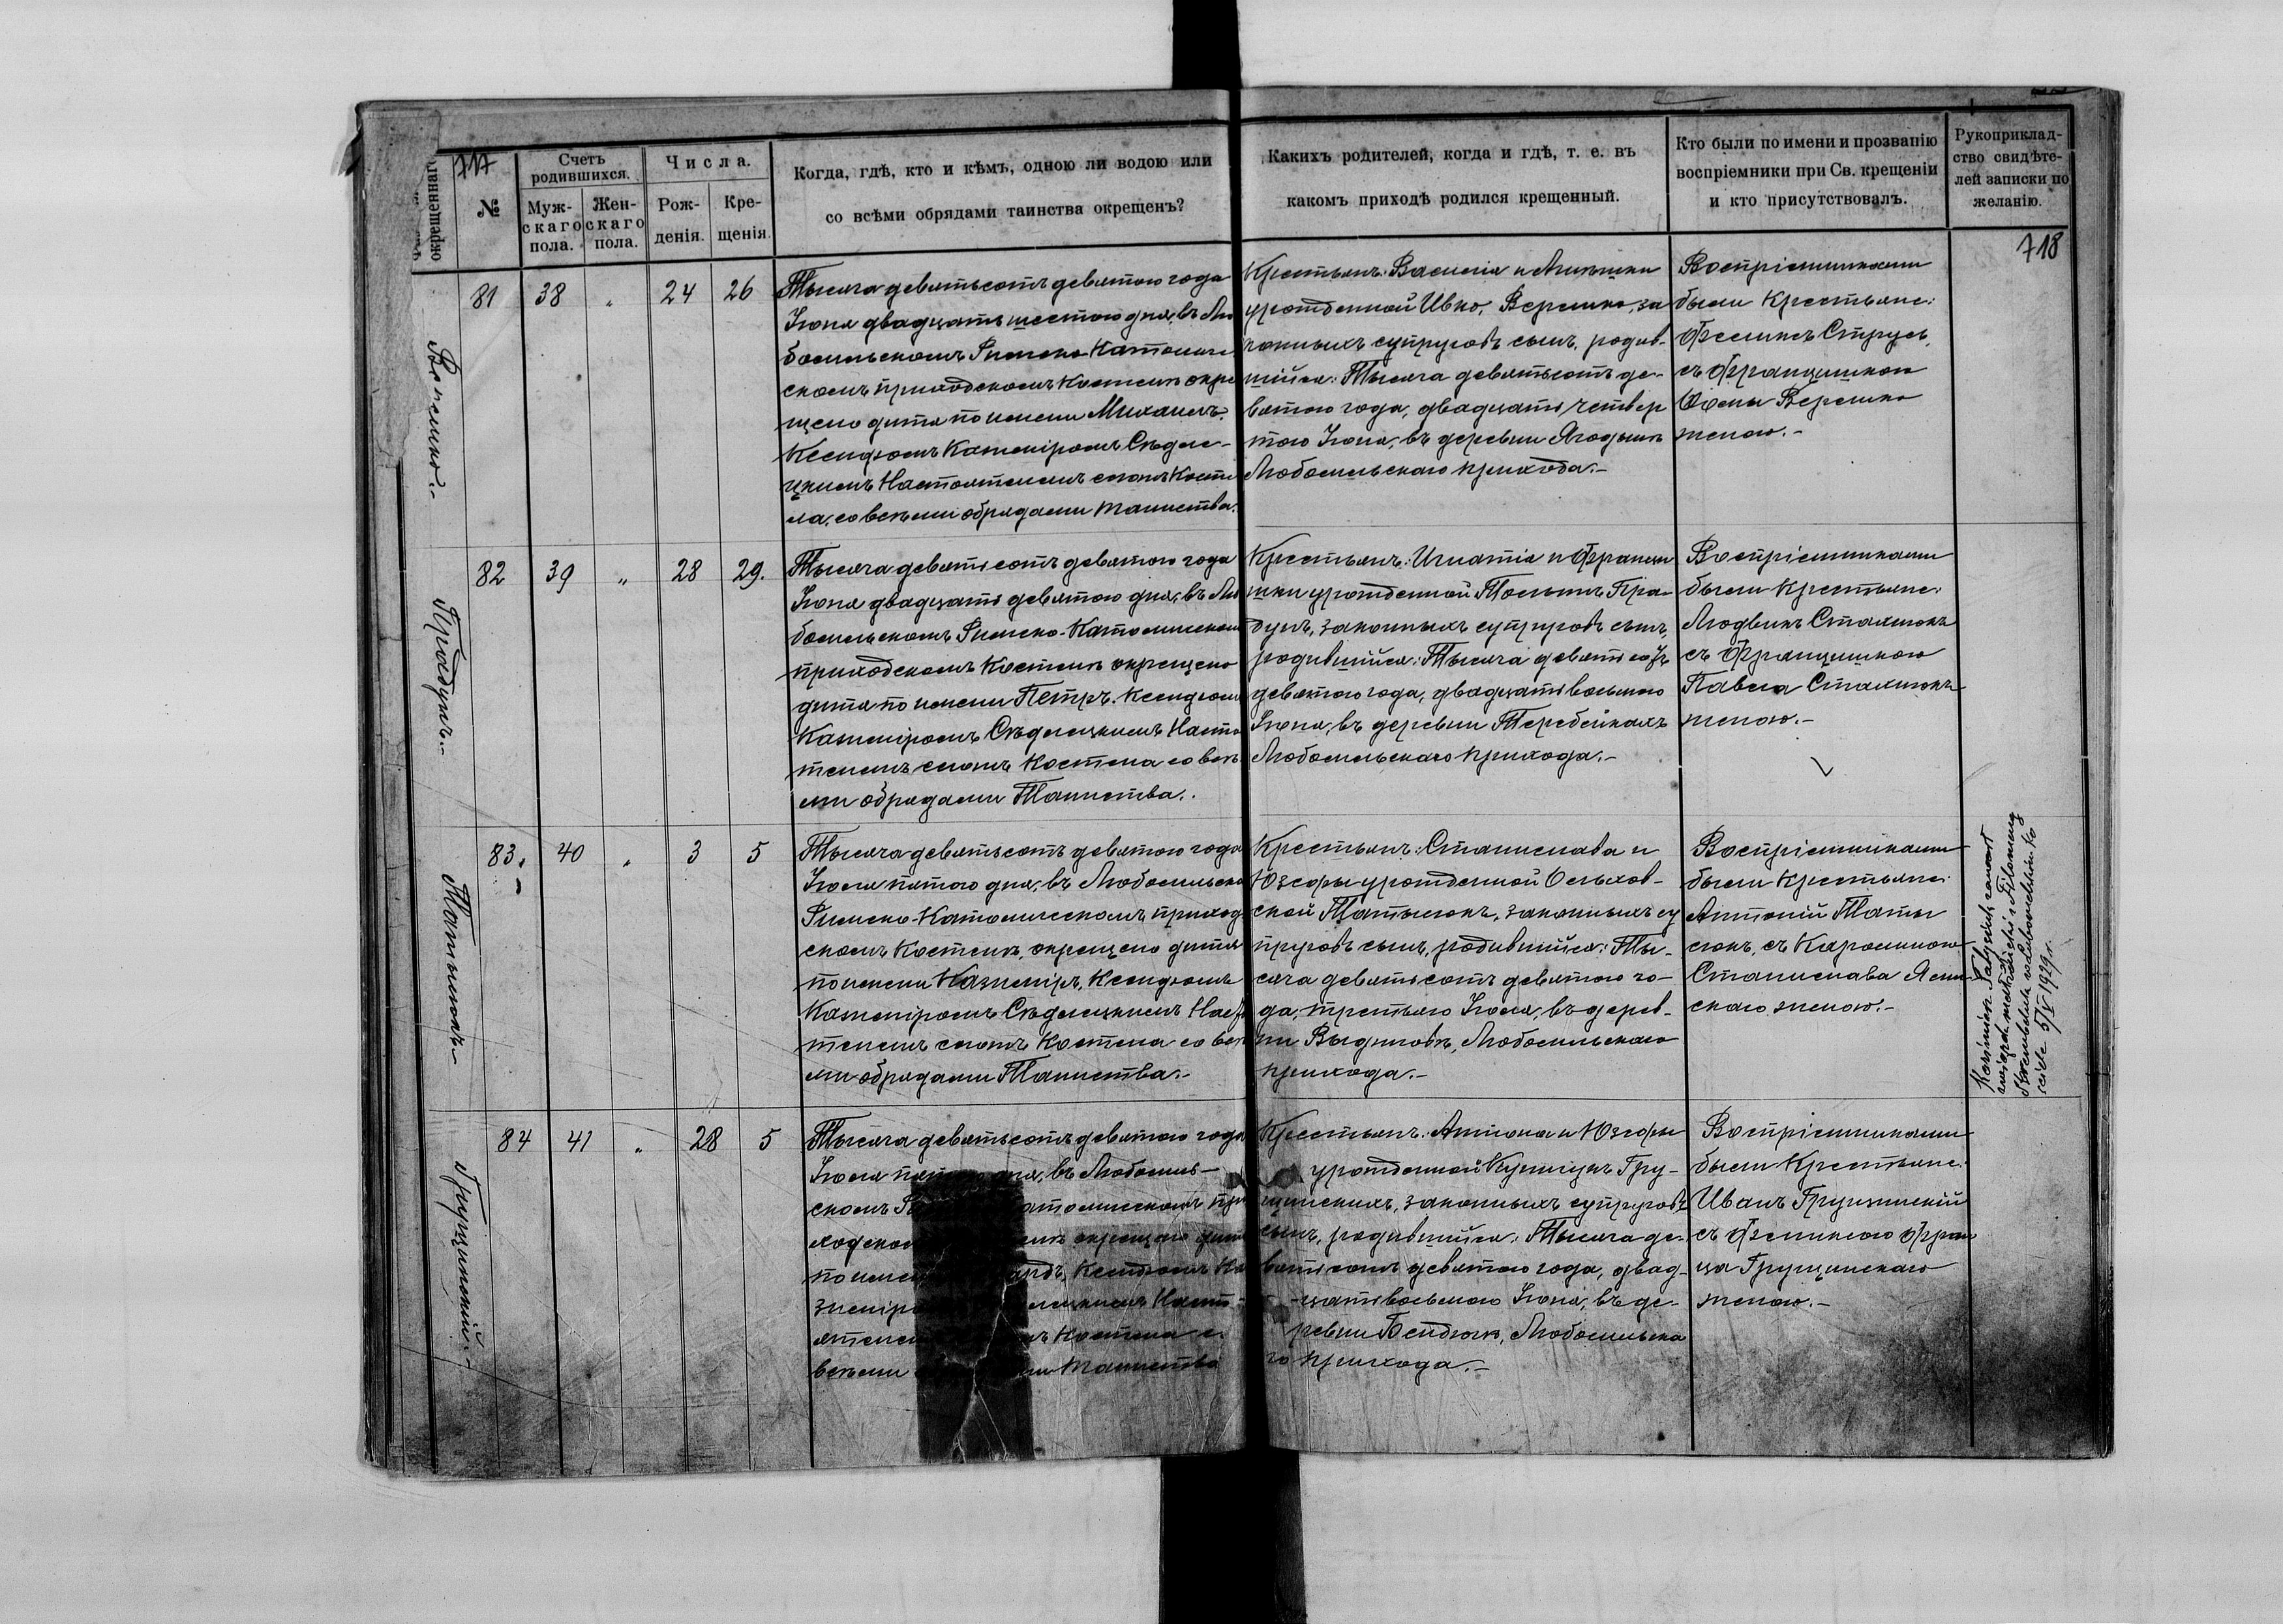 окрещеннаго
717
№
Счетъ родившихся.
Муж-
скаго
пола.
Жен-
скаго
пола.
Числа.
Рож-
денія.
Кре-
щенія.
Когда, гдѣ, кто и кѣмъ, одною ли водою или
со всѣми обрядами таинства окрещенъ?
Какихъ родителей, когда и гдѣ, т. е. въ
какомъ приходѣ родился крещенный.
Кто были по имени и прозванію
воспріемники при Св. крещеніи
и кто присутствовалъ.
Рукоприклад-
ство свидѣте-
лей записки по
желанію.
718
Веремко.-
81 38 " 24 26
Тысяча девятьсотъ девятого года
Іюня двадцать шестого дня, въ Лю
бомльскомъ Римско-Католиче
скомъ приходскомъ Костелѣ окре
щено дитя по имени Михаилъ.
Ксендзомъ Казимiромъ Сѣдле-
цкимъ Настоятелемъ сюгожъ Косте
ла, со всѣми обрядами таинства.
Крестьянъ: Василія и
урожденной Ивко, Веремко, за
конныхъ супруговъ сынъ, родив-
шійся: Тысяча девятьсотъ де-
вятого года, двадцать четвер
того Іюня, въ деревни Ягодынѣ
Любомльскаго прихода.-
Воспріемниками
были Крестьяне:
Феликсъ Струсь,
съ Францишкою
Фомы Веремко
женою.-
82 39 " 28 29.
Тысяча девятьсотъ девятого года
Іюня двадцать девятого дня, въ Лю
бомльскомъ Римско-Католическомъ
приходскомъ Костелѣ окрещено
дитя по имени Петръ. Ксендзомъ
Казимiромъ Сѣдлецкимъ Насто
телемъ сюгожъ Костела со всѣ
ми обрядами Таинства.
Крестьянъ: Игнатія и Францы
шки урожденной
законныхъ супруговъ сынъ,
родившійся: Тысяча девятьсотъ
девятого года, двадцать восьмого
Іюня, въ деревни Теребейкахъ
Любомльскаго прихода.-
Воспріемниками
были Крестьяне:
Людвикъ Сталмокъ
съ Францишкою
Павла Сталмокъ
женою.-
83. 40 " 3 5
Татысюкъ-
Тысяча девятьсотъ девятого года
Іюля пятого дня, въ Любомльско
Римско-Католическомъ приход
скомъ Костелѣ, окрещено дитя
по имени Казимiръ, Ксендзомъ
Казимiромъ Сѣдлецкимъ Насто
телемъ сюгожъ Костела со всѣ
ми обрядами Таинства.-
Крестьянъ: Станислава и
Юзефы урожденной Ольхов-
ской Татысюкъ, законныхъ су
пруговъ сынъ, родившійся: Ты-
сяча девятьсотъ девятого го-
да, третьяго Іюля, въ дерев-
ни Выдумовъ, Любомльскаго
прихода.-
Воспріемниками
были Крестьяне:
Антоній Таты
сюкъ, съ Каролиною
Станислава Ясин
скаго женою.-
Kazimierz Tatysiuk zawarł
związek małżeński z Filomeną
w Lubomlskim Ko
ściele 5/V 1929 r.
84 41 " 28 5
Тысяча девятьсотъ девятого года
Іюля дня, въ Любомль-
скомъ при
окрещено дитя
по имени Ксендзомъ Ка
Насто-
Костела с
всѣми Таинства
Крестьянъ: Антона и Юзефы
урожденной Гру-
щинскихъ, законныхъ супруговъ
сынъ, родившійся: Тысяча де-
вятьсотъ девятого года, двад-
цать восьмого Іюня, въ де-
ревни Бендюгѣ, Любомльска
го прихода.-
Воспріемниками
были Крестьяне:
Иванъ Грущинскій
съ Феликсою Фран
ца Грущинскаго
женою.-